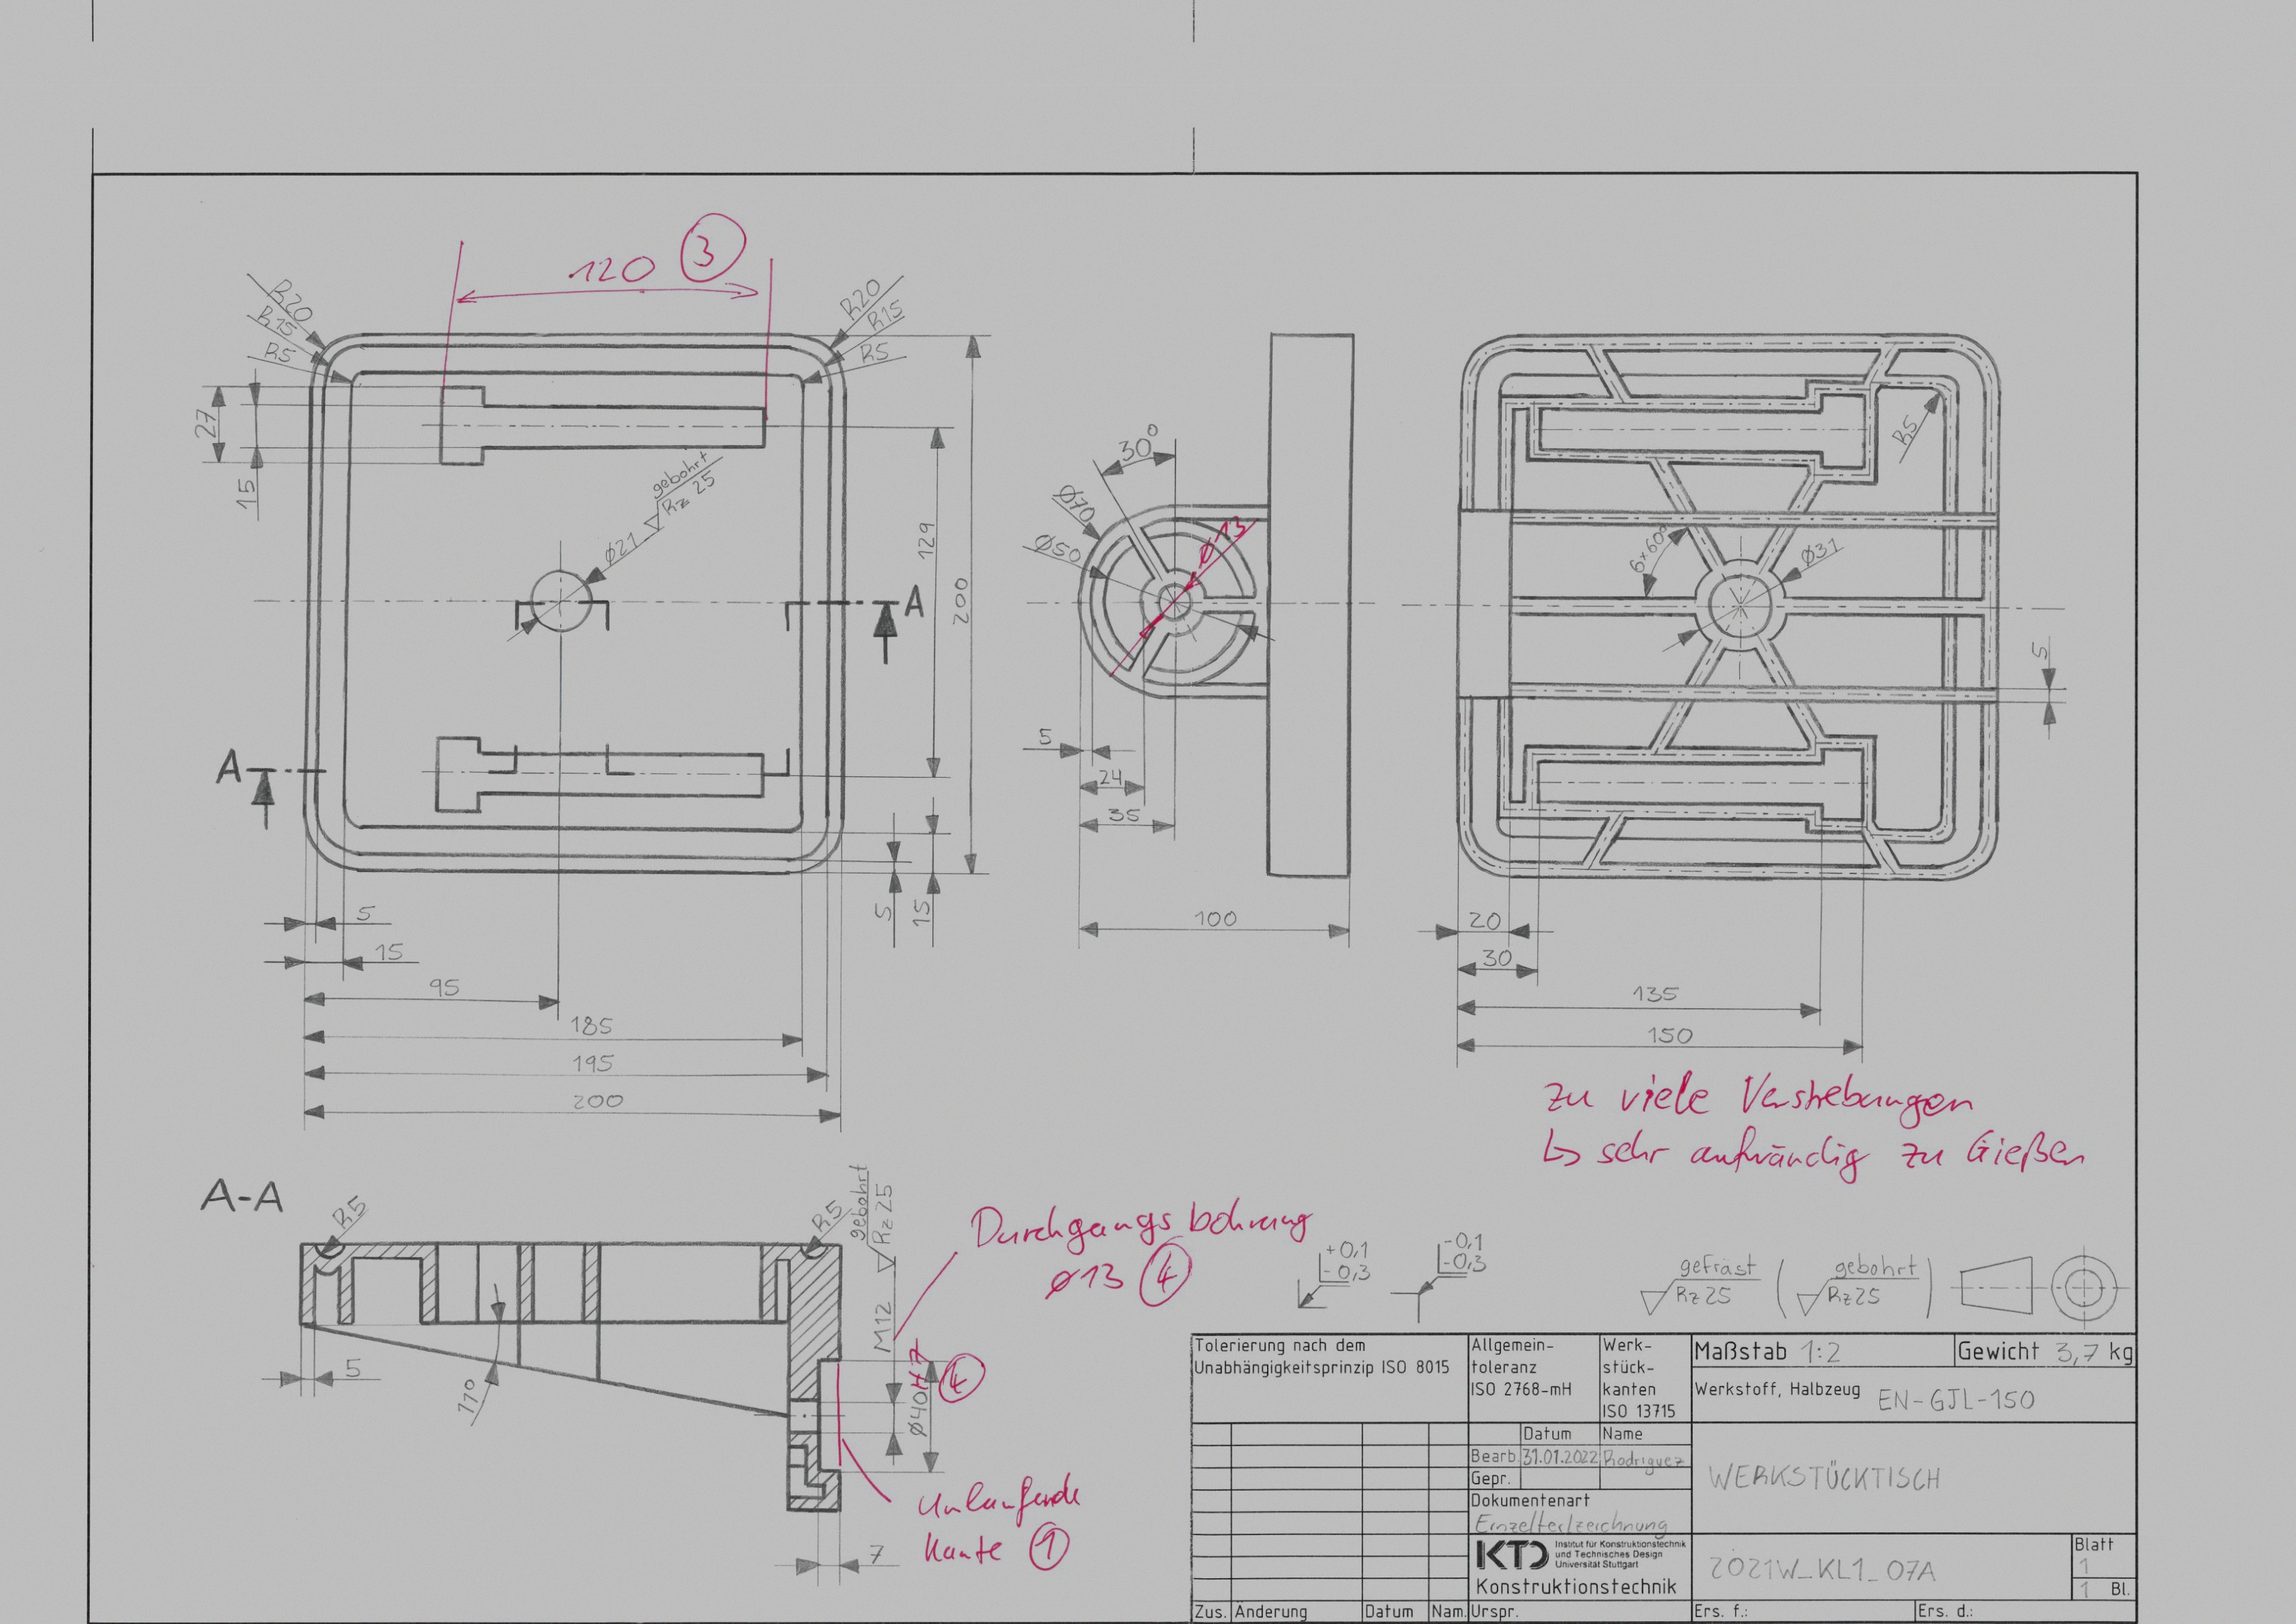 120 3
R20
R15
R5
R20
R15
R5
27
15
gebohrt
Rz 25
Ø21
129
200
A
A
5
15
5
15
95
185
195
200
30°
Ø70
Ø50
Ø13
5
24
35
100
R5
6×60°
Ø31
5
20
30
135
150
zu viele Verstrebungen
↳ sehr aufwändig zu Gießen
A-A
R5
R5
gebohrt
Rz 25
M12
Durchgangsbohrung
Ø13 4
Ø40H7 4
5
Umlaufende
Kante 1
7
+0,1
-0,3
-0,1
-0,3
gefräst
Rz 25
( gebohrt
Rz25 )
Tolerierung nach dem
Unabhängigkeitsprinzip ISO 8015
Allgemein-
toleranz
ISO 2768-mH
Werk-
stück-
kanten
ISO 13715
Maßstab 1:2
Gewicht 3,7 kg
Werkstoff, Halbzeug EN-GJL-150
Datum Name
Bearb. 31.01.2022 Rodriguez
Gepr.
Dokumentenart
Einzelteilzeichnung
WERKSTÜCKTISCH
KTD Institut für Konstruktionstechnik
und Technisches Design
Universität Stuttgart
Konstruktionstechnik
2021W_KL1_07A
Blatt
1
1 Bl.
Zus. Änderung Datum Nam. Urspr. Ers. f.: Ers. d.: